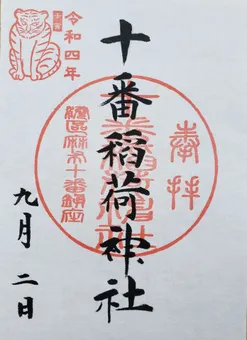 奉拝
十番稲荷神社
港區麻布十番鎮座
令和四年
九月二日